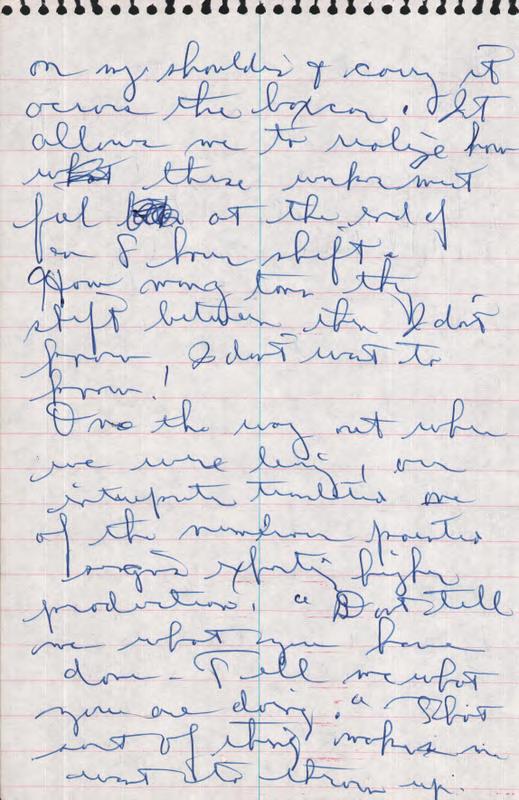 on my shoulders & carry it
across the boxcar. It
allows me to realize how
these workers must
feel at the end of
an 8 hour shift.
How many tons they
shift between them I don't
know, I don't want to
know!
On the way out when
we were leaving, our
interpreter translated one
of the numerous painted
slogans exhorting higher
production. "Don't tell
me what you have
done - Tell me what
you are doing." That
sort of thing makes me
want to throw up.